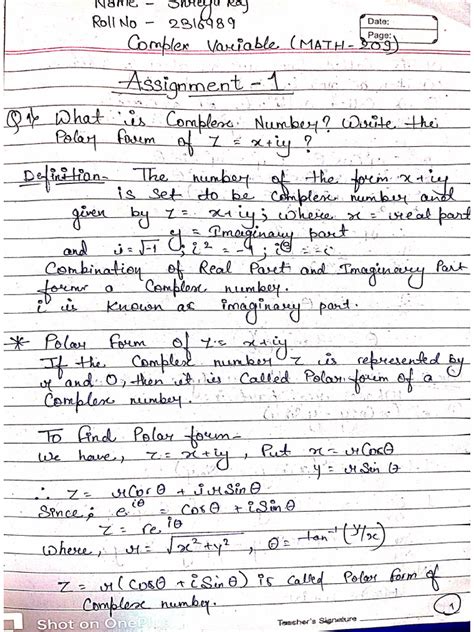 Name - Shreya Raj
Roll No - 2316989
Date:
Page:
Complex Variable (MATH-309)
Assignment - 1
Q1 What is Complex Number? Write the
Polar Form of Z = x+iy ?
Definition- The number of the form x+iy
is set to be complex number and
given by Z = x+iy; where x = real part
y = Imaginary part
and i = √-1 ; i² = -1 ; i³ = -i
Combination of Real Part and Imaginary Part
forms a Complex number.
i is known as imaginary part.
* Polar Form of Z = x+iy
If the Complex number Z is represented by
r and θ, then it is Called Polar form of a
Complex number.
To find Polar form-
We have, Z = x+iy, Put x = rCosθ
y = rSinθ
∴ Z = rCosθ + irSinθ
Since, e^iθ = Cosθ + iSinθ
Z = re^iθ
where, r = √x²+y² , θ = tan⁻¹(y/x)
Z = r(Cosθ + iSinθ) is called Polar form of
Complex number.
1
Teacher's Signature
Shot on One